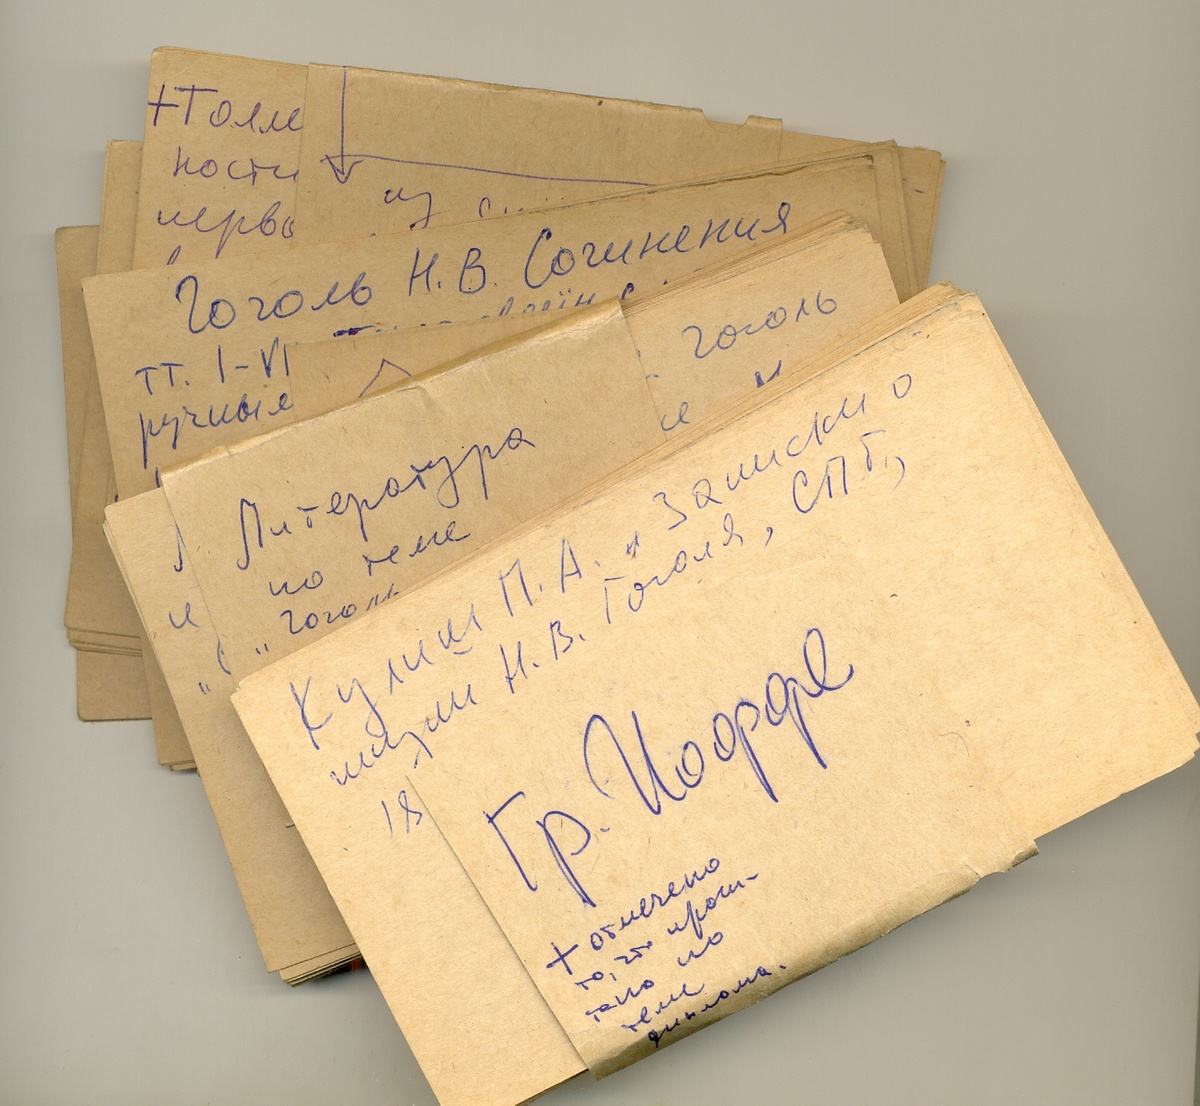 +Толм
ности
перво
из
Гоголь Н.В. Сочинения
тт. I-VI
ручные
Гоголь
Литература
по теме
„Гоголь
Кулиш П.А. „Записки о
жизни Н.В. Гоголя, СПб.,
18
Гр. Иоффе
+ отмечено
то, что прочи-
тано по
теме
диплома.